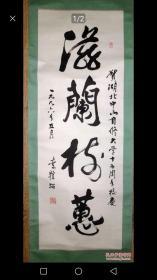 1/2
滋蘭樹蕙
賀湖北中山自修大學十五周年校慶
一九九六年五月